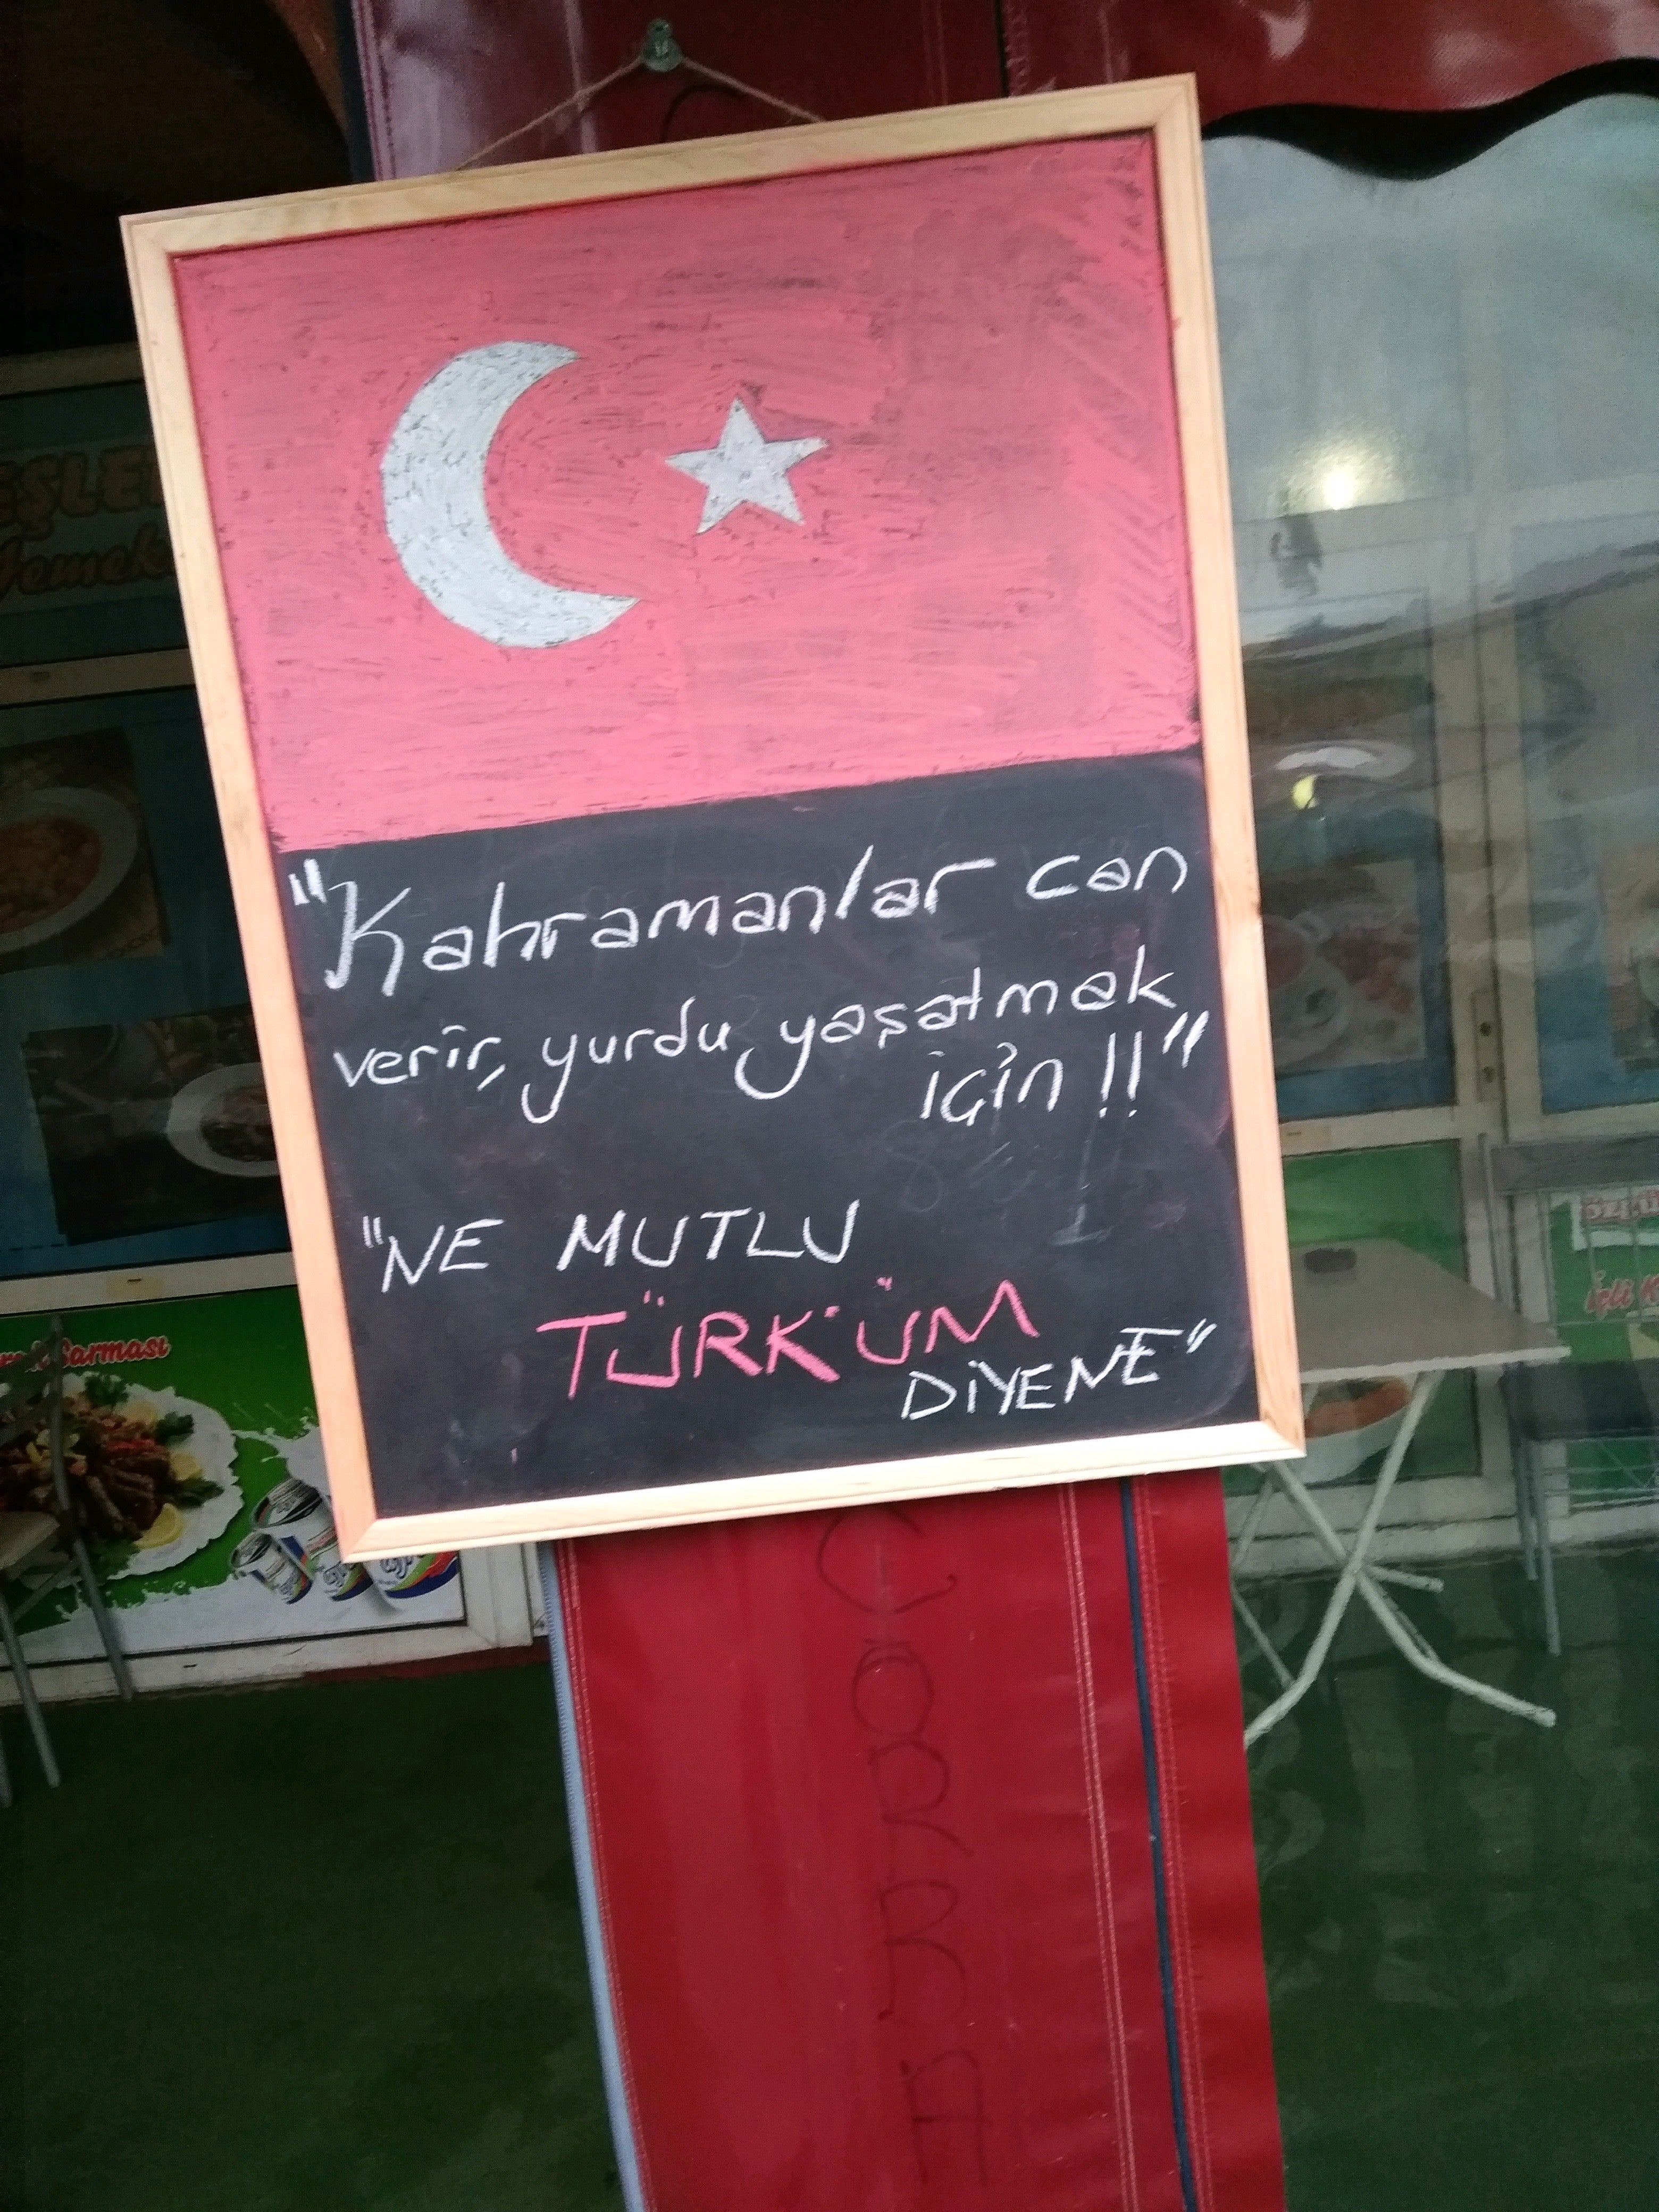 EŞLE
Yemek
"Kahramanlar can
verir, yurdu yaşatmak
için !!"
"NE MUTLU
TÜRK'ÜM
DİYENE"
Sarması
içli K
ÇORBA